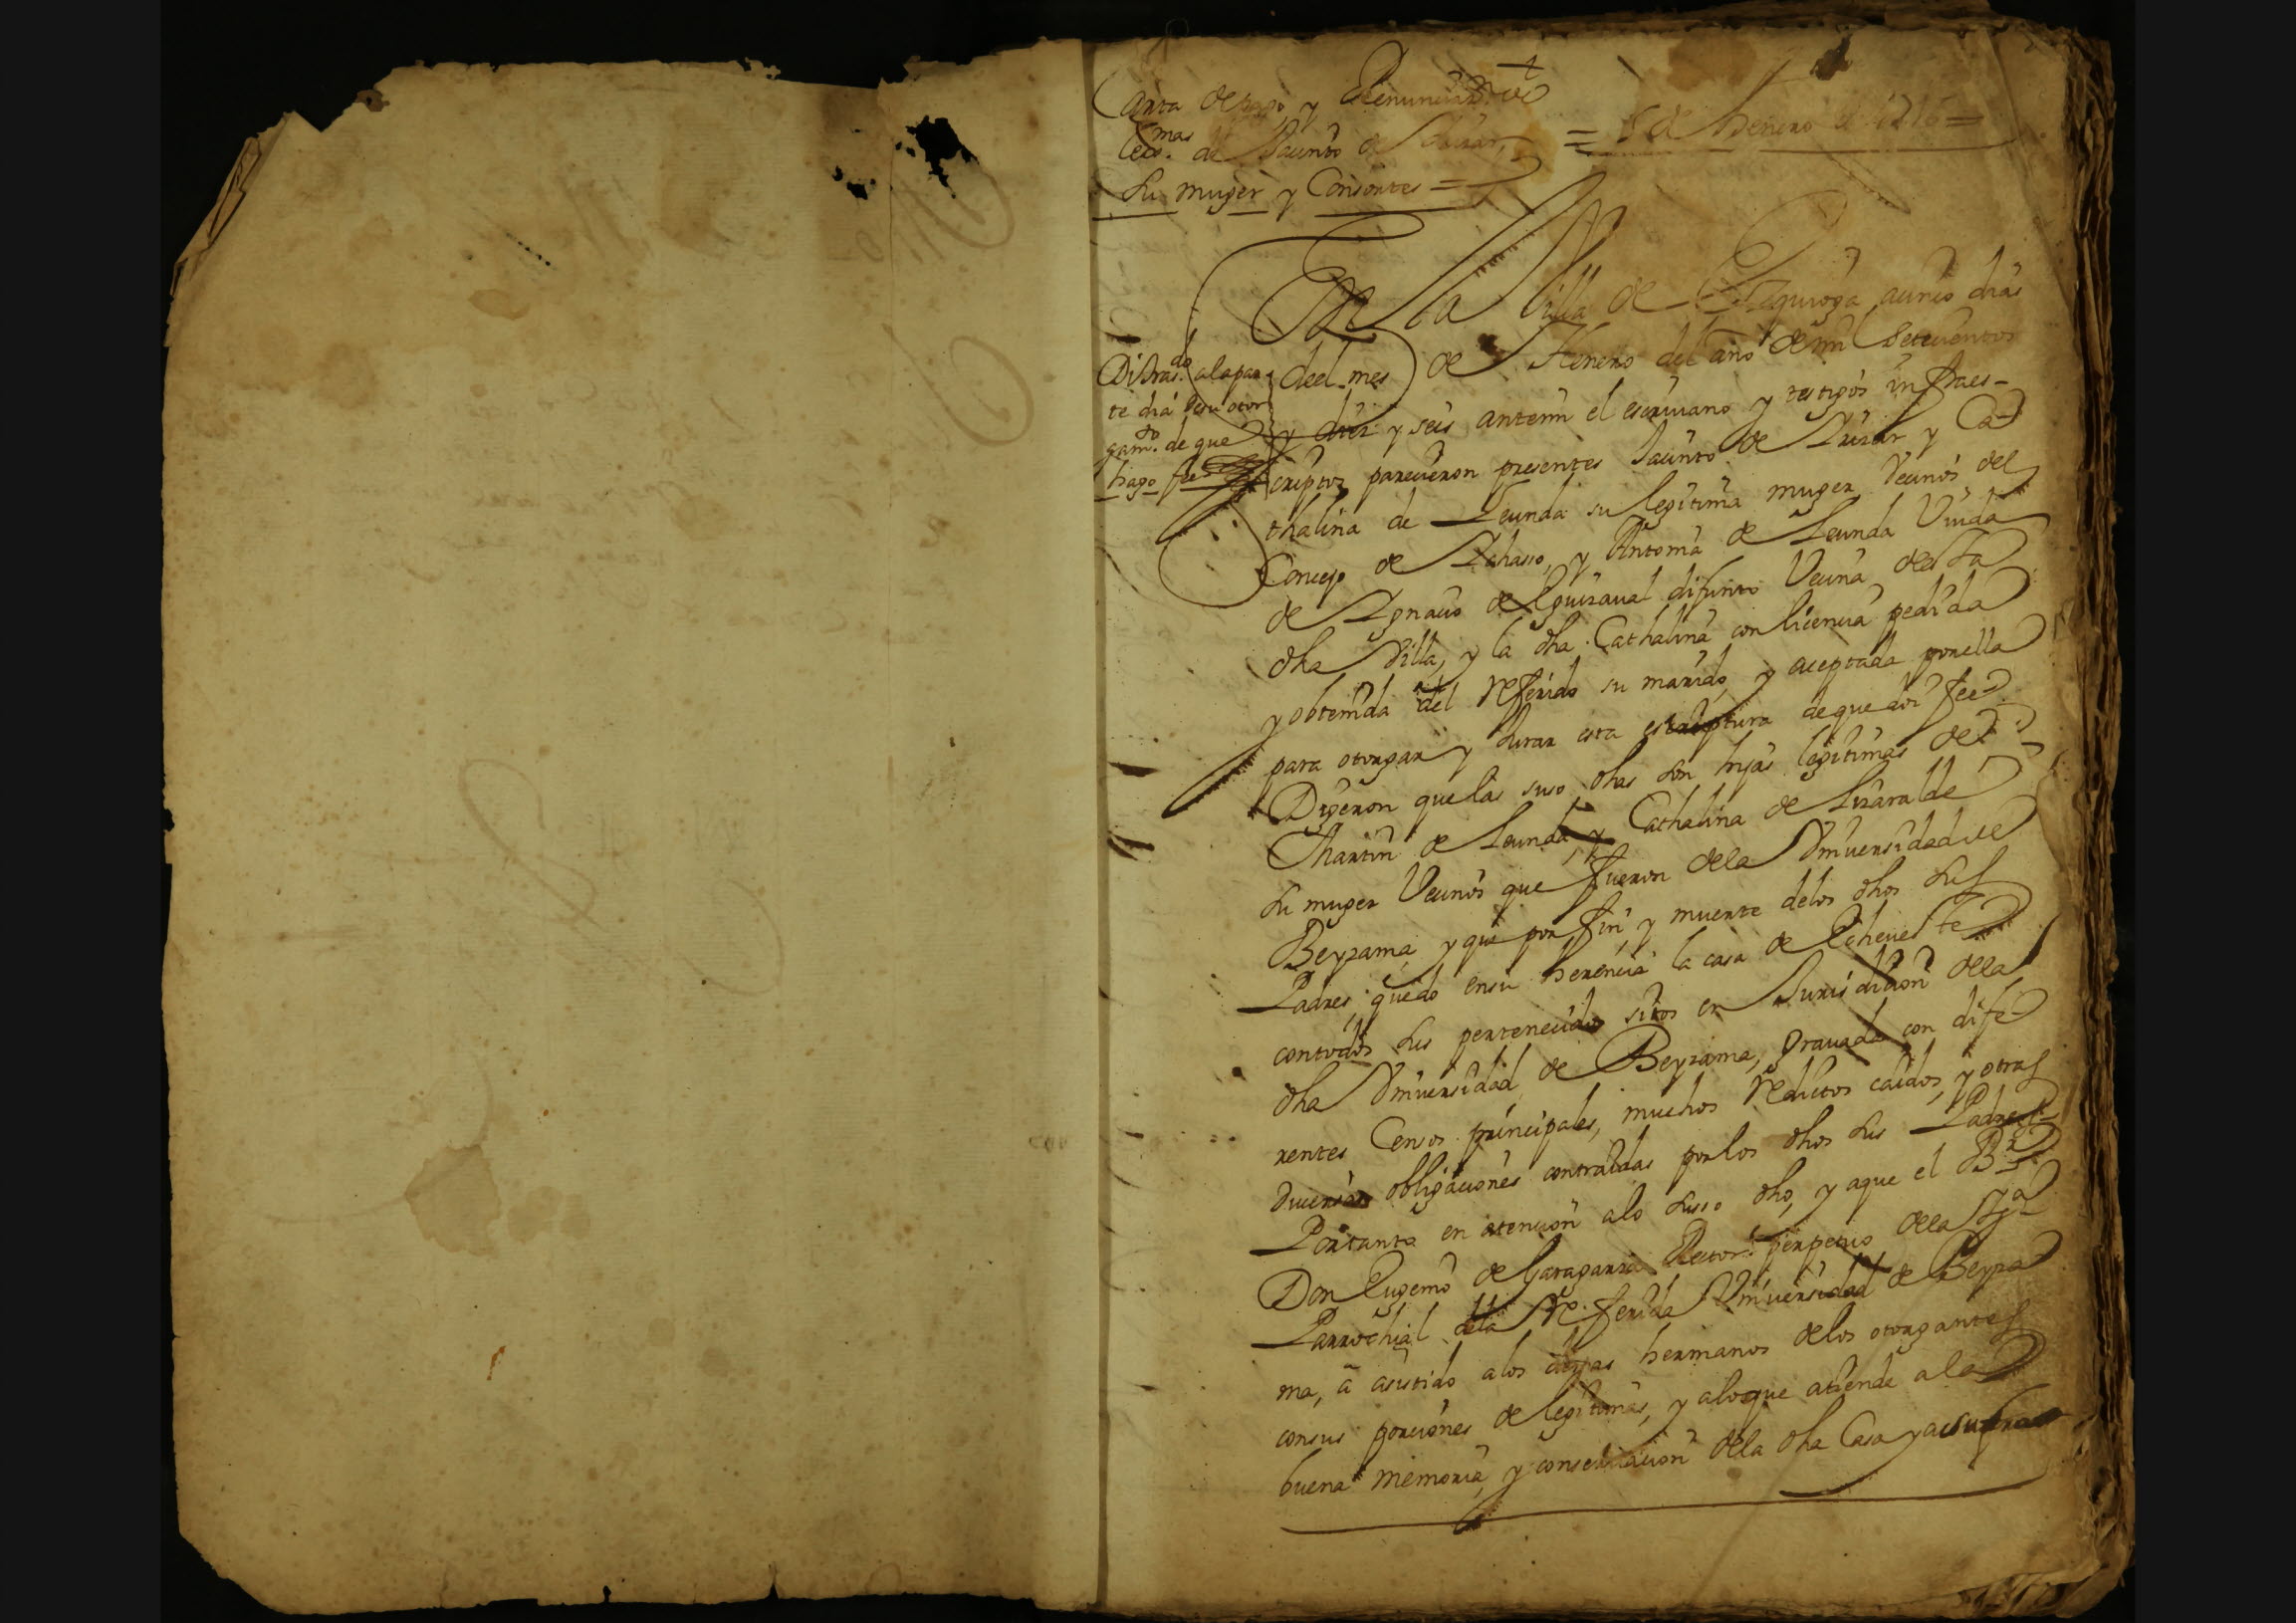 Carta de pago y Renunciaz.on de
lexmas de Jacinto de
su muger y Consortes =
= 5 de Henero de 1716 =
En la Villa de Azquroga acinco dias
deel mes de Henero del año de mil Setecientos
y diez y seis antemi el escriuano y testigos infraes-
criptos parecieron presentes Jacinto de y Ca-
thalina de Leunda su legitima muger Vecinos del
Concejo de y Antonia de Leunda Viuda
de Ygnacio de Eguzaual difunto Vecina desta
dha Villa, y la dha Cathalina con licencia pedida
y obtenida del referido su marido, y aceptada porella
para otorgar y Jurar esta escriptura dequedoi fee
Digeron quelas suso dhas son hijas legitimas de
Martin de Leunda, y Cathalina de Lizaralde
su muger Vecinos que fueron dela Vniuersidad de
Beyzama, y que por fin, y muerte delos dhos sus
Padres, quedo ensu herencia la casa de Echeueste
contodos sus pertenecidos sitos en Jurisdicion dela
dha Vniuersidad de Beyzama, grauada con dife
rentes Censos principales, muchos reditos caidos, y otras
diuersas obligaciones contraidas porlos dhos sus Padres
Portanto en atencion alo susso dho, y aque el B.r
Don Eugenio de Garagarza Rector perpetuo dela Yg.a
Parrochial dela referida Vniuersidad de Beyza
ma, à asistido a los hermanos delos otorgantes
consus porciones de legitimas, y aloque atiende ala
buena memoria, y conseruacion dela dha Casa y
alapar
te dia desu otor
gam.to de que
hago fee